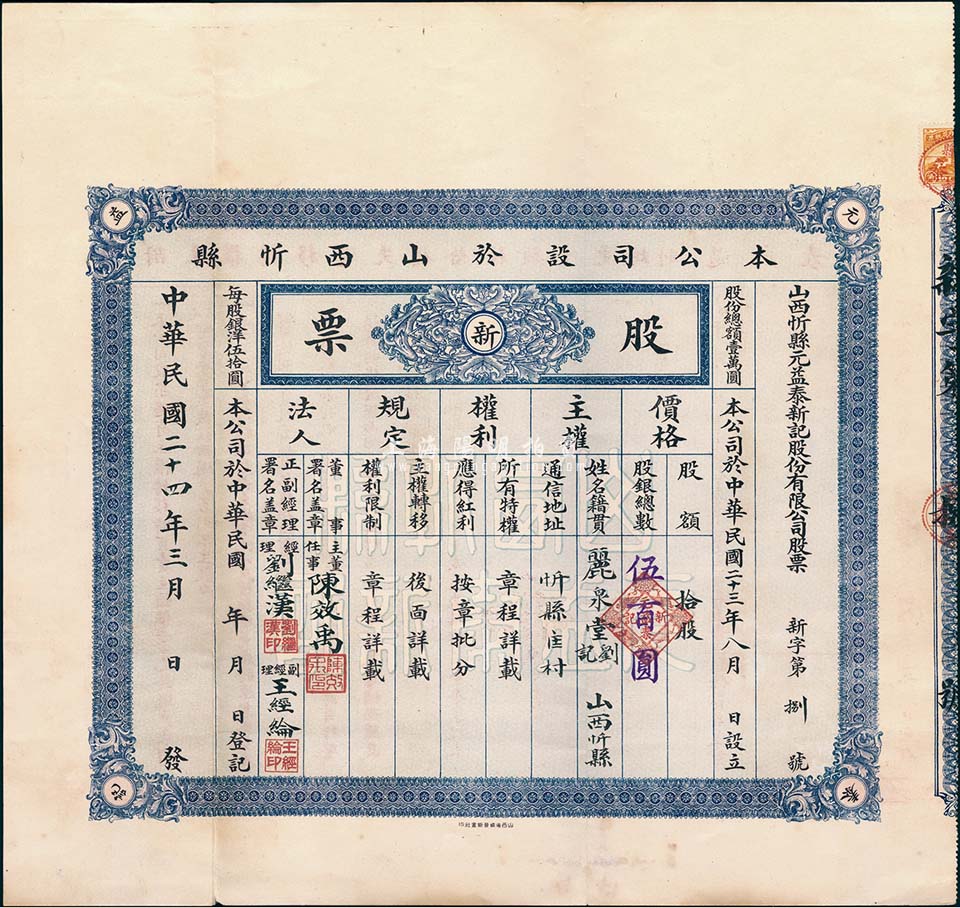 元
益
泰
記
本公司設於山西忻縣
山西忻縣元益泰新記股份有限公司股票 新字第捌號
股份總額壹萬圓
本公司於中華民國二十三年八月 日設立
股
新
票
價格
股額 拾股
股銀總數 伍百圓
主權
姓名籍貫 麗泉堂劉記 山西忻縣
通信地址 忻縣匡村
權利
所有特權 章程詳載
應得紅利 按章批分
規定
主權轉移 後面詳載
權利限制 章程詳載
法人
董事署名盖章 主任董事 陳效禹
正副經理署名盖章 經理 劉繼漢 劉繼漢印 副經理 王經綸 王經綸印
每股銀洋伍拾圓
本公司於中華民國 年 月 日登記
中華民國二十四年三月 日 發
新字第捌號